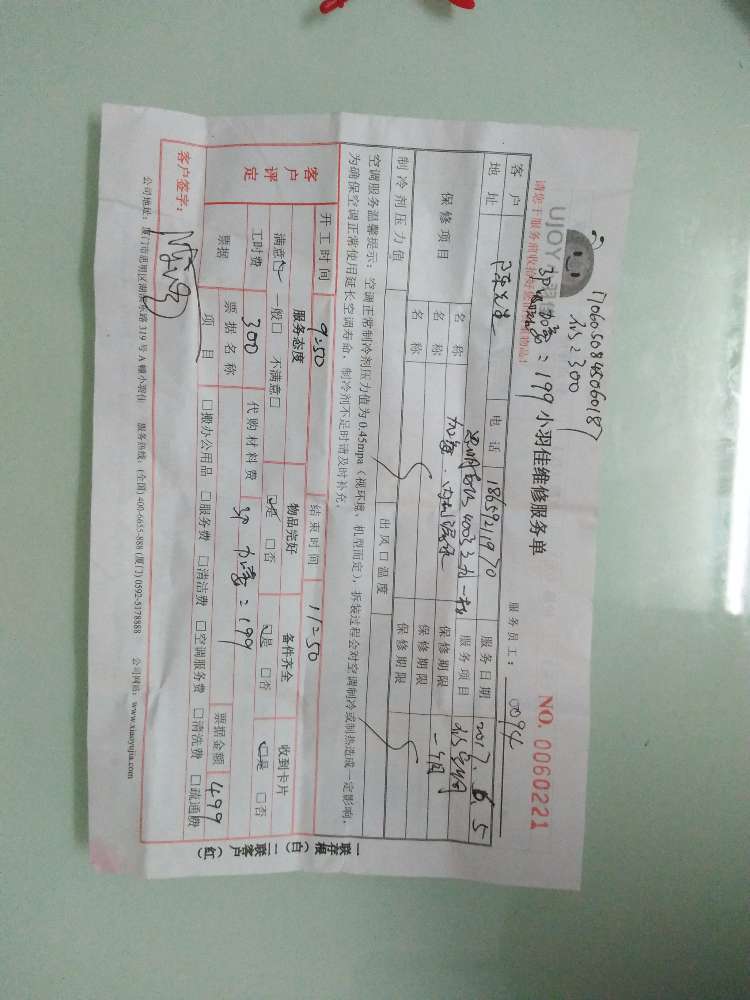 170605084506018
修=300
3P 加氨=199
UJOY
小羽佳维修服务单
NO. 0060221
服务员工：
客户 陈先生 电话 18659211970 服务日期 2017.6.5
地址 服务项目
保修项目 名称 保修期限 一个月
名称 保修期限
制冷剂压力值 名称 出风口温度 保修期限
空调服务温馨提示：空调正常制冷剂压力值为 0.45mpa（视环境、机型而定），拆装过程会对空调制冷或制热造成一定影响，
为确保空调正常使用延长空调寿命，制冷剂不足时请及时补充。
开工时间 9:50 结束时间 11:50
客户评定 服务态度 物品完好 备件齐全 收到卡片
满意□ 一般□ 不满意□ □是 □否 □是 □否 □是 □否
工时费 300 代购材料费 199 票据金额 499
票据 票据名称
项目 □搬办公用品 □服务费 □清洁费 □空调服务费 □清洗费 □疏通费
客户签字：
公司地址：厦门市思明区湖滨东路 319 号 A 幢小羽佳 服务热线：(全国) 400-6655-888 (厦门) 0592-5178888 公司网站：www.xiaoyujia.com
一联存根（白） 二联客户（红）